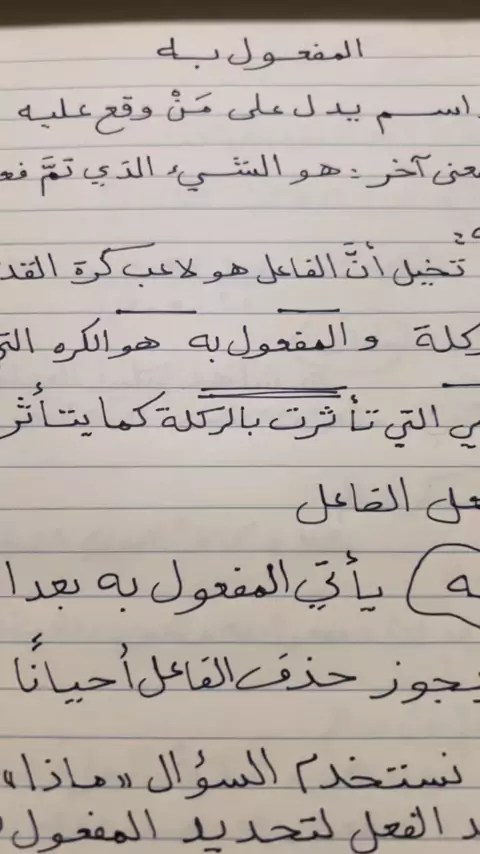 المفعول به
اسم يدل على مَنْ وقع عليه
آخر : هو الشيء الذي تمَّ
تخيل أنَّ الفاعل هو لاعب كرة
والمفعول به هو الكره
التي تأثرت بالركلة كما يتأثر
الفاعل
يأتي المفعول به بعد
يجوز حذف الفاعل أحيانًا
نستخدم السؤال «ماذا»
الفعل لتحديد المفعول